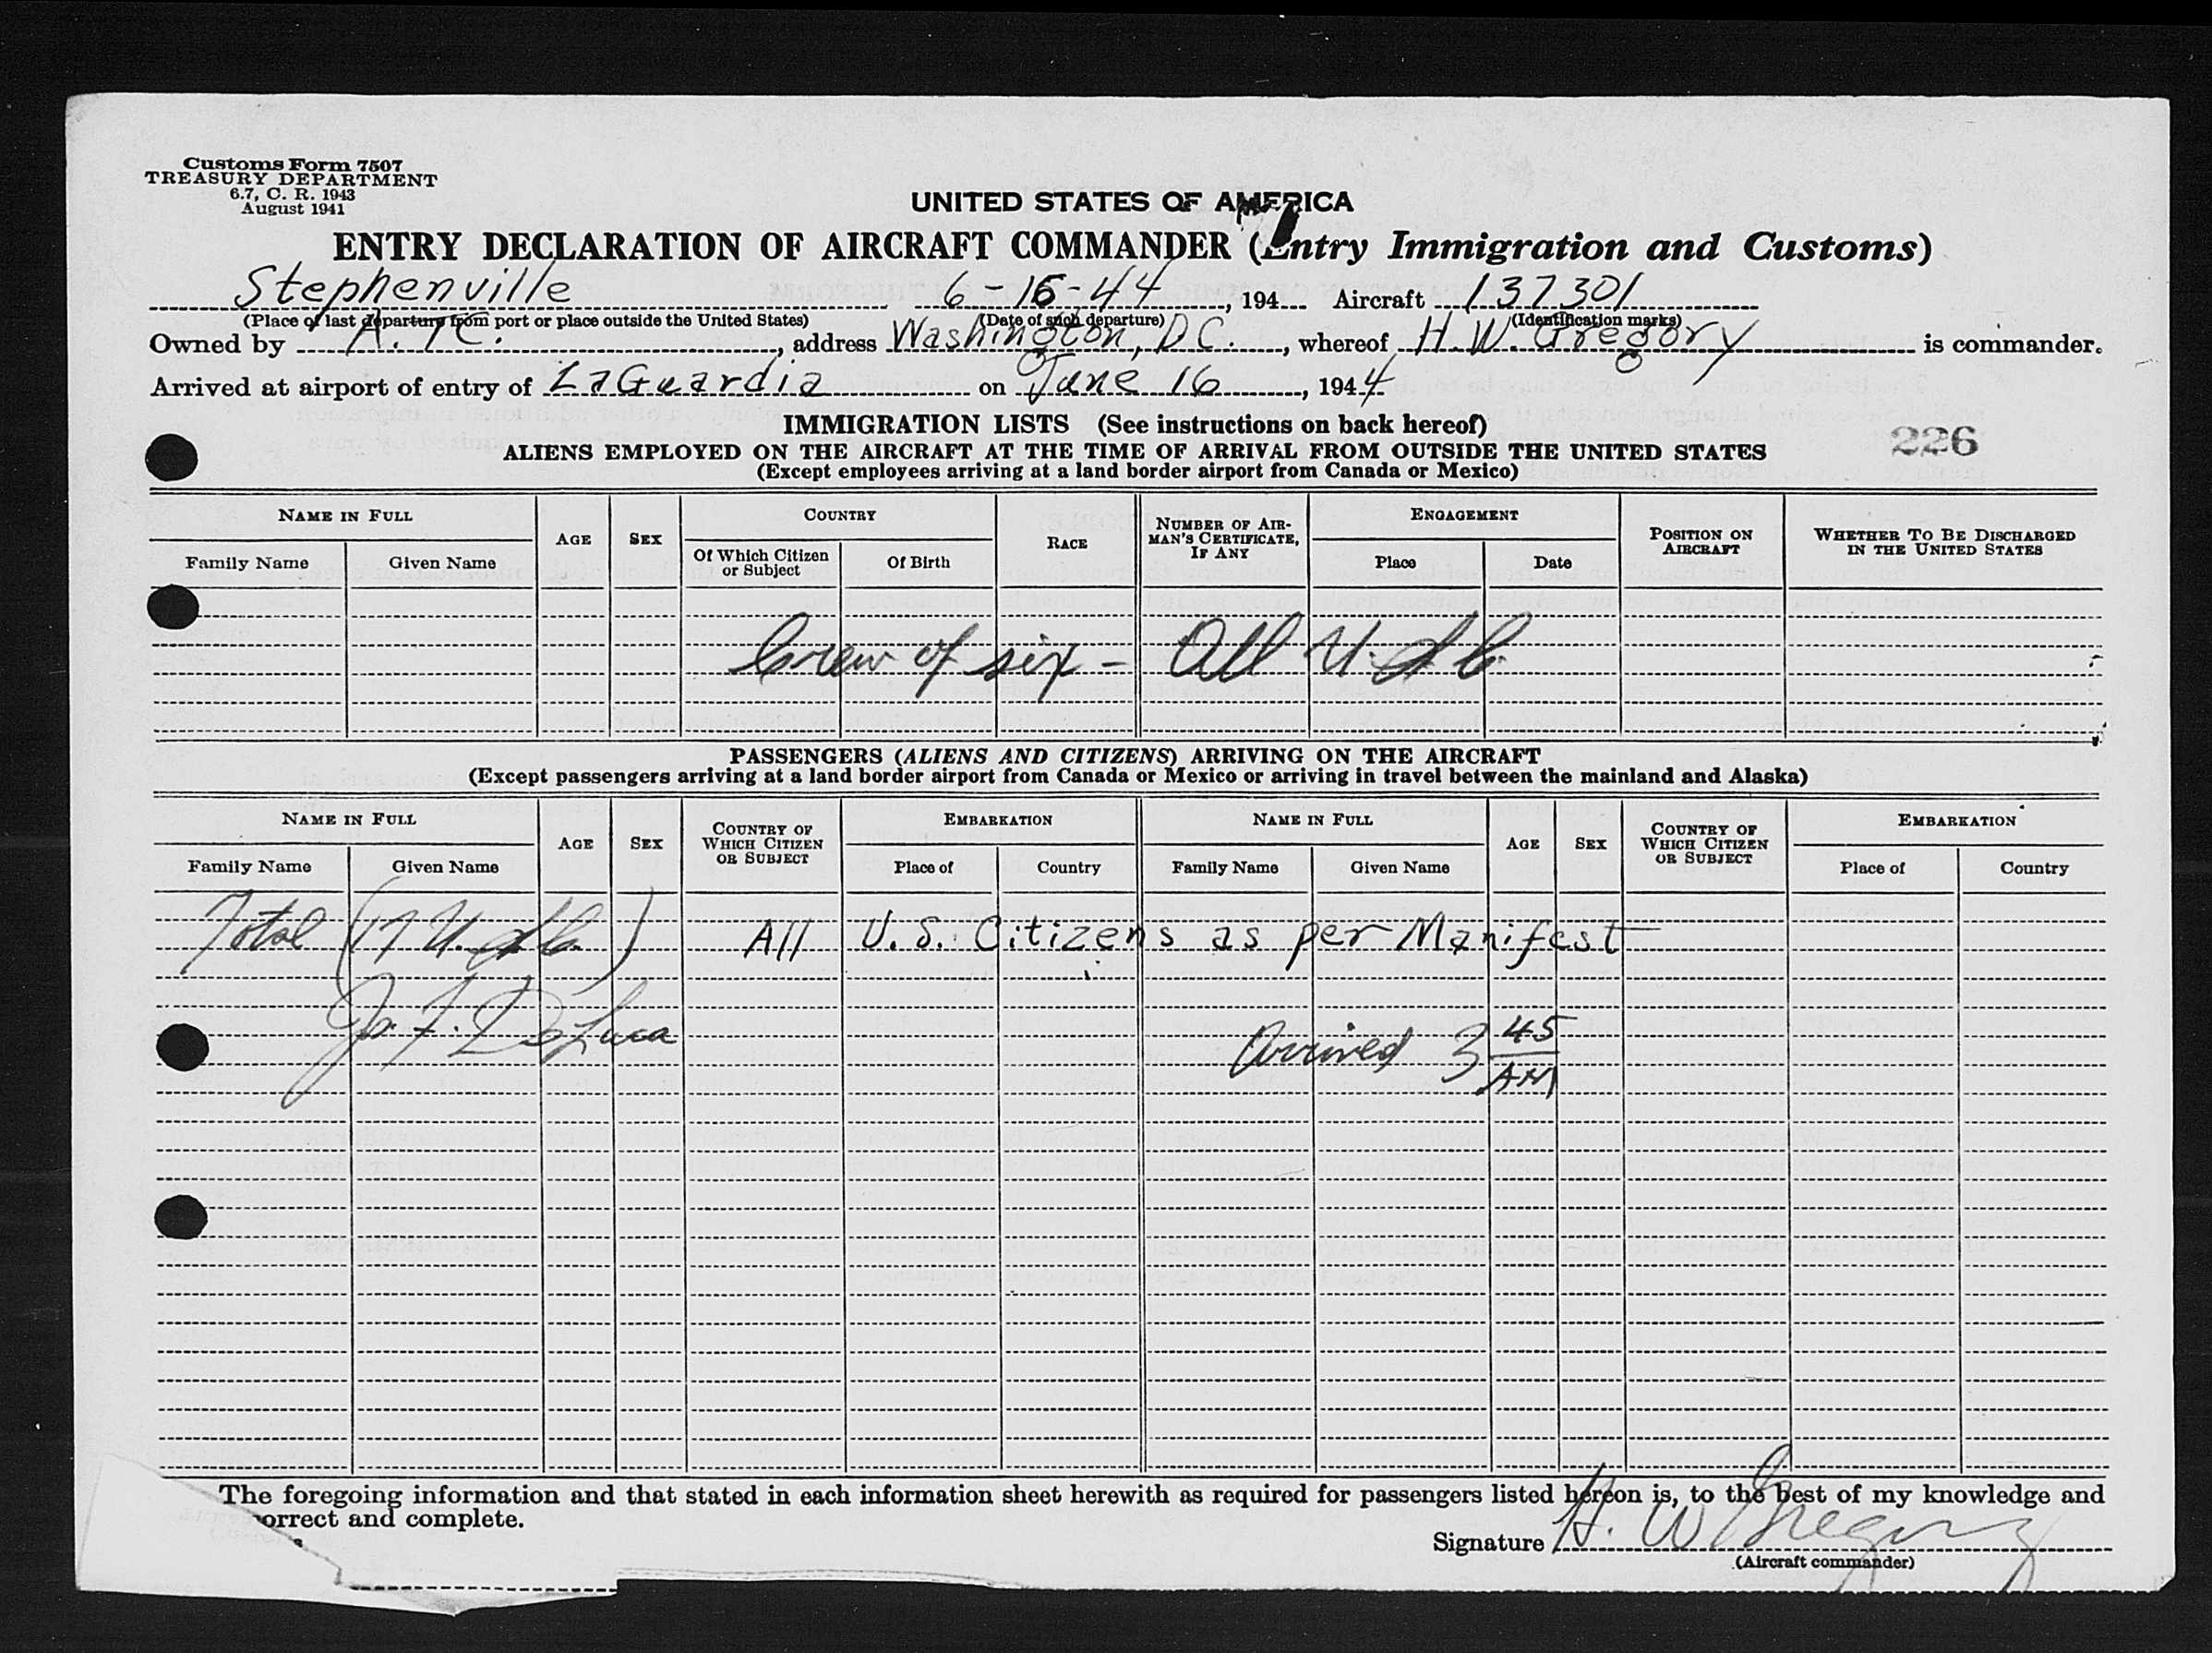 Customs Form 7507
TREASURY DEPARTMENT
6.7, C. R. 1943
August 1941
UNITED STATES OF AMERICA
ENTRY DECLARATION OF AIRCRAFT COMMANDER (Entry Immigration and Customs)
Stephenville 6-15-44, 194 Aircraft 137301
(Place of last departure from port or place outside the United States) (Date of such departure) (Identification marks)
Owned by A.T.C., address Washington, D.C., whereof H.W. Gregory is commander.
Arrived at airport of entry of LaGuardia on June 16, 1944
IMMIGRATION LISTS (See instructions on back hereof)
226
ALIENS EMPLOYED ON THE AIRCRAFT AT THE TIME OF ARRIVAL FROM OUTSIDE THE UNITED STATES
(Except employees arriving at a land border airport from Canada or Mexico)
NAME IN FULL AGE SEX COUNTRY RACE NUMBER OF AIR-MAN'S CERTIFICATE, IF ANY ENGAGEMENT POSITION ON AIRCRAFT WHETHER TO BE DISCHARGED IN THE UNITED STATES
Family Name Given Name Of Which Citizen or Subject Of Birth Place Date
Crew of six - All U.S.C.
PASSENGERS (ALIENS AND CITIZENS) ARRIVING ON THE AIRCRAFT
(Except passengers arriving at a land border airport from Canada or Mexico or arriving in travel between the mainland and Alaska)
NAME IN FULL AGE SEX COUNTRY OF WHICH CITIZEN OR SUBJECT EMBARKATION NAME IN FULL AGE SEX COUNTRY OF WHICH CITIZEN OR SUBJECT EMBARKATION
Family Name Given Name Place of Country Family Name Given Name Place of Country
Total (17 U.S.C.) All U.S. Citizens as per Manifest
F. DeLuca
Arrived 3 45 AM
The foregoing information and that stated in each information sheet herewith as required for passengers listed hereon is, to the best of my knowledge and
correct and complete.
Signature H. W Gregory
(Aircraft commander)